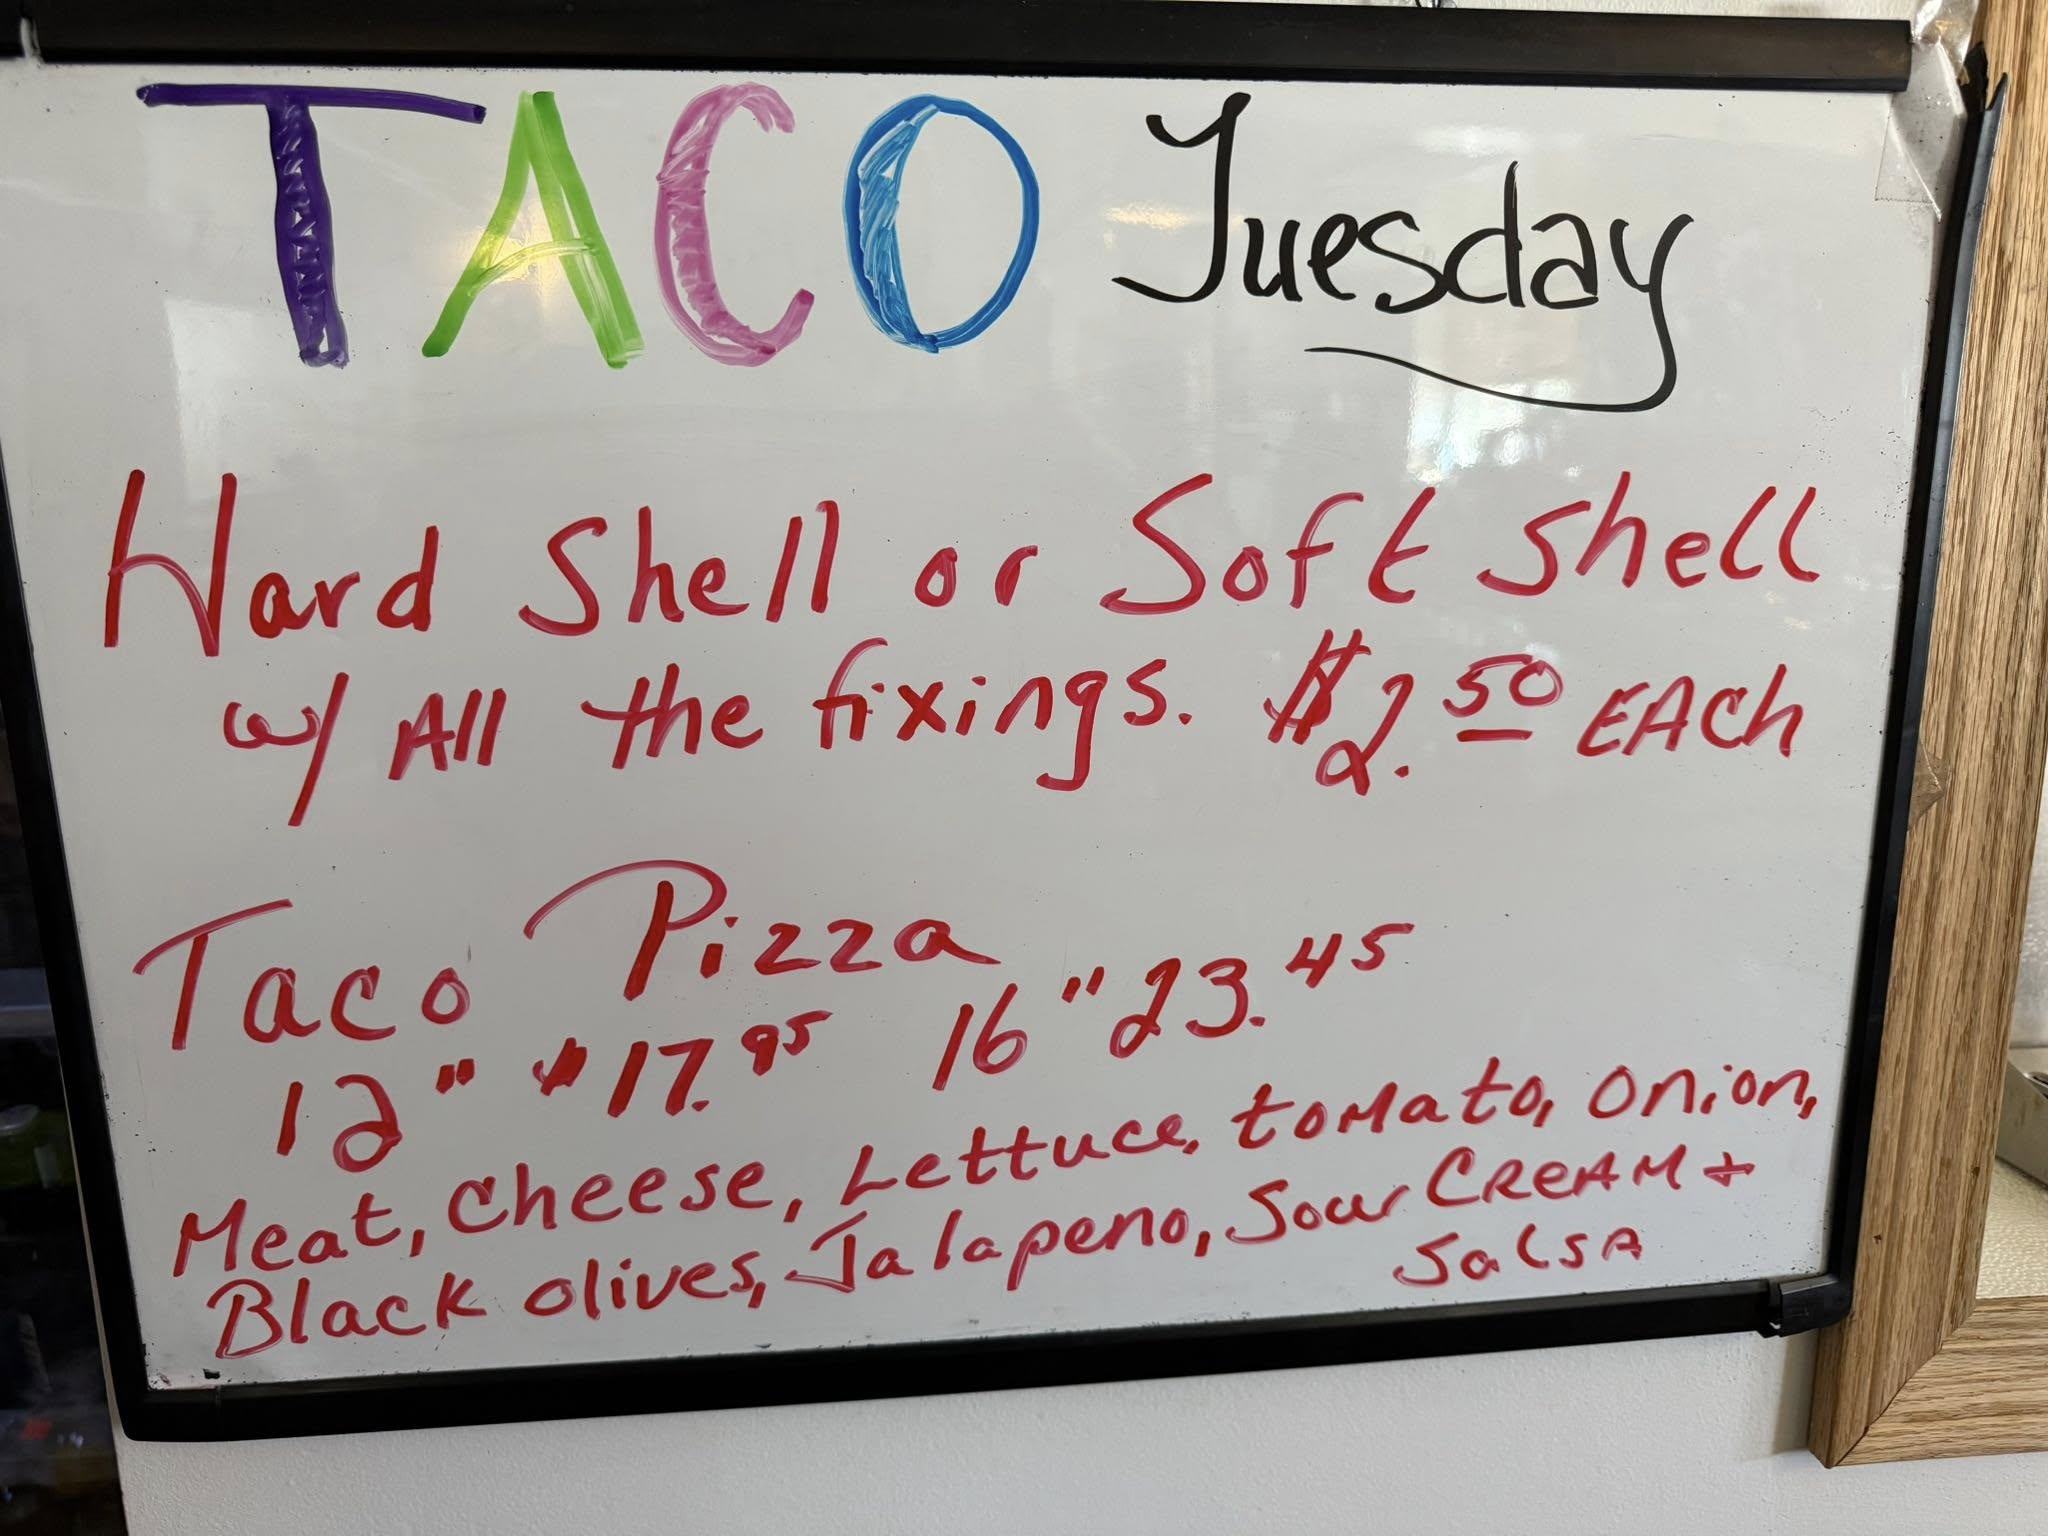 TACO Tuesday
Hard Shell or Soft Shell
w/ All the fixings. $2.50 EACh
Taco Pizza
12" $17.95 16" 23.45
Meat, Cheese, Lettuce, toMato, Onion,
Black olives, Jalapeno, Sour CREAM +
SalSA